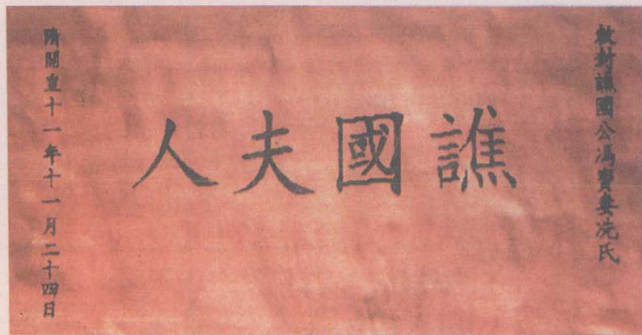 敕封譙國公馮寶妻冼氏
譙國夫人
隋開皇十一年十一月二十四日